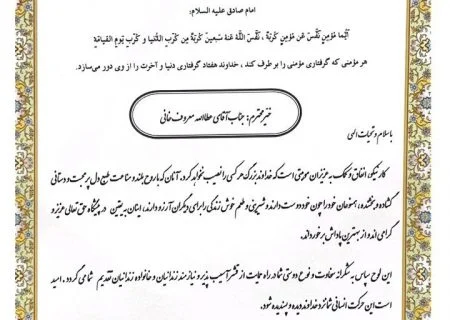 امام صادق علیه السلام:
أیُّما مُؤمِنٍ نَفَّسَ عَن مُؤمِنٍ کُربَةً ، نَفَّسَ اللّهُ عَنهُ سَبعینَ کُربَةً مِن کُرَبِ الدُّنیا و کُرَبِ یَومِ القیامَةِ
هر مؤمنی که گرفتاری مؤمنی را بر طرف کند ، خداوند هفتاد گرفتاری دنیا و آخرت را از وی دور می‌سازد.
خیر محترم: جناب آقای عطاالله معروف خانی
با سلام و تحیات الهی
کار نیکو، انفاق و کمک به عزیزان موهبتی است که خداوند بزرگ هر کسی را نصیب نخواهد کرد. آنان که با روح بلند و مناعت طبع دل پر محبت و دستانی
گشاده و بخشنده، همنوعان خود را چون خود دوست دارند و شیرینی و طعم خوش زندگی را برای دیگران آرزو دارند، اینان بی‌یقین در پیشگاه حق تعالی عزیز و
گرامی اند و از بهترین پاداش برخوردارند.
این لوح سپاس به شکرانه سخاوت و نوع دوستی شما در راه حمایت از قشر آسیب پذیر و نیازمند زندانیان و خانواده زندانیان تقدیم شما می گردد . امید
است این حرکت انسانی شما نزد خداوند دیده و پسندیده شود.